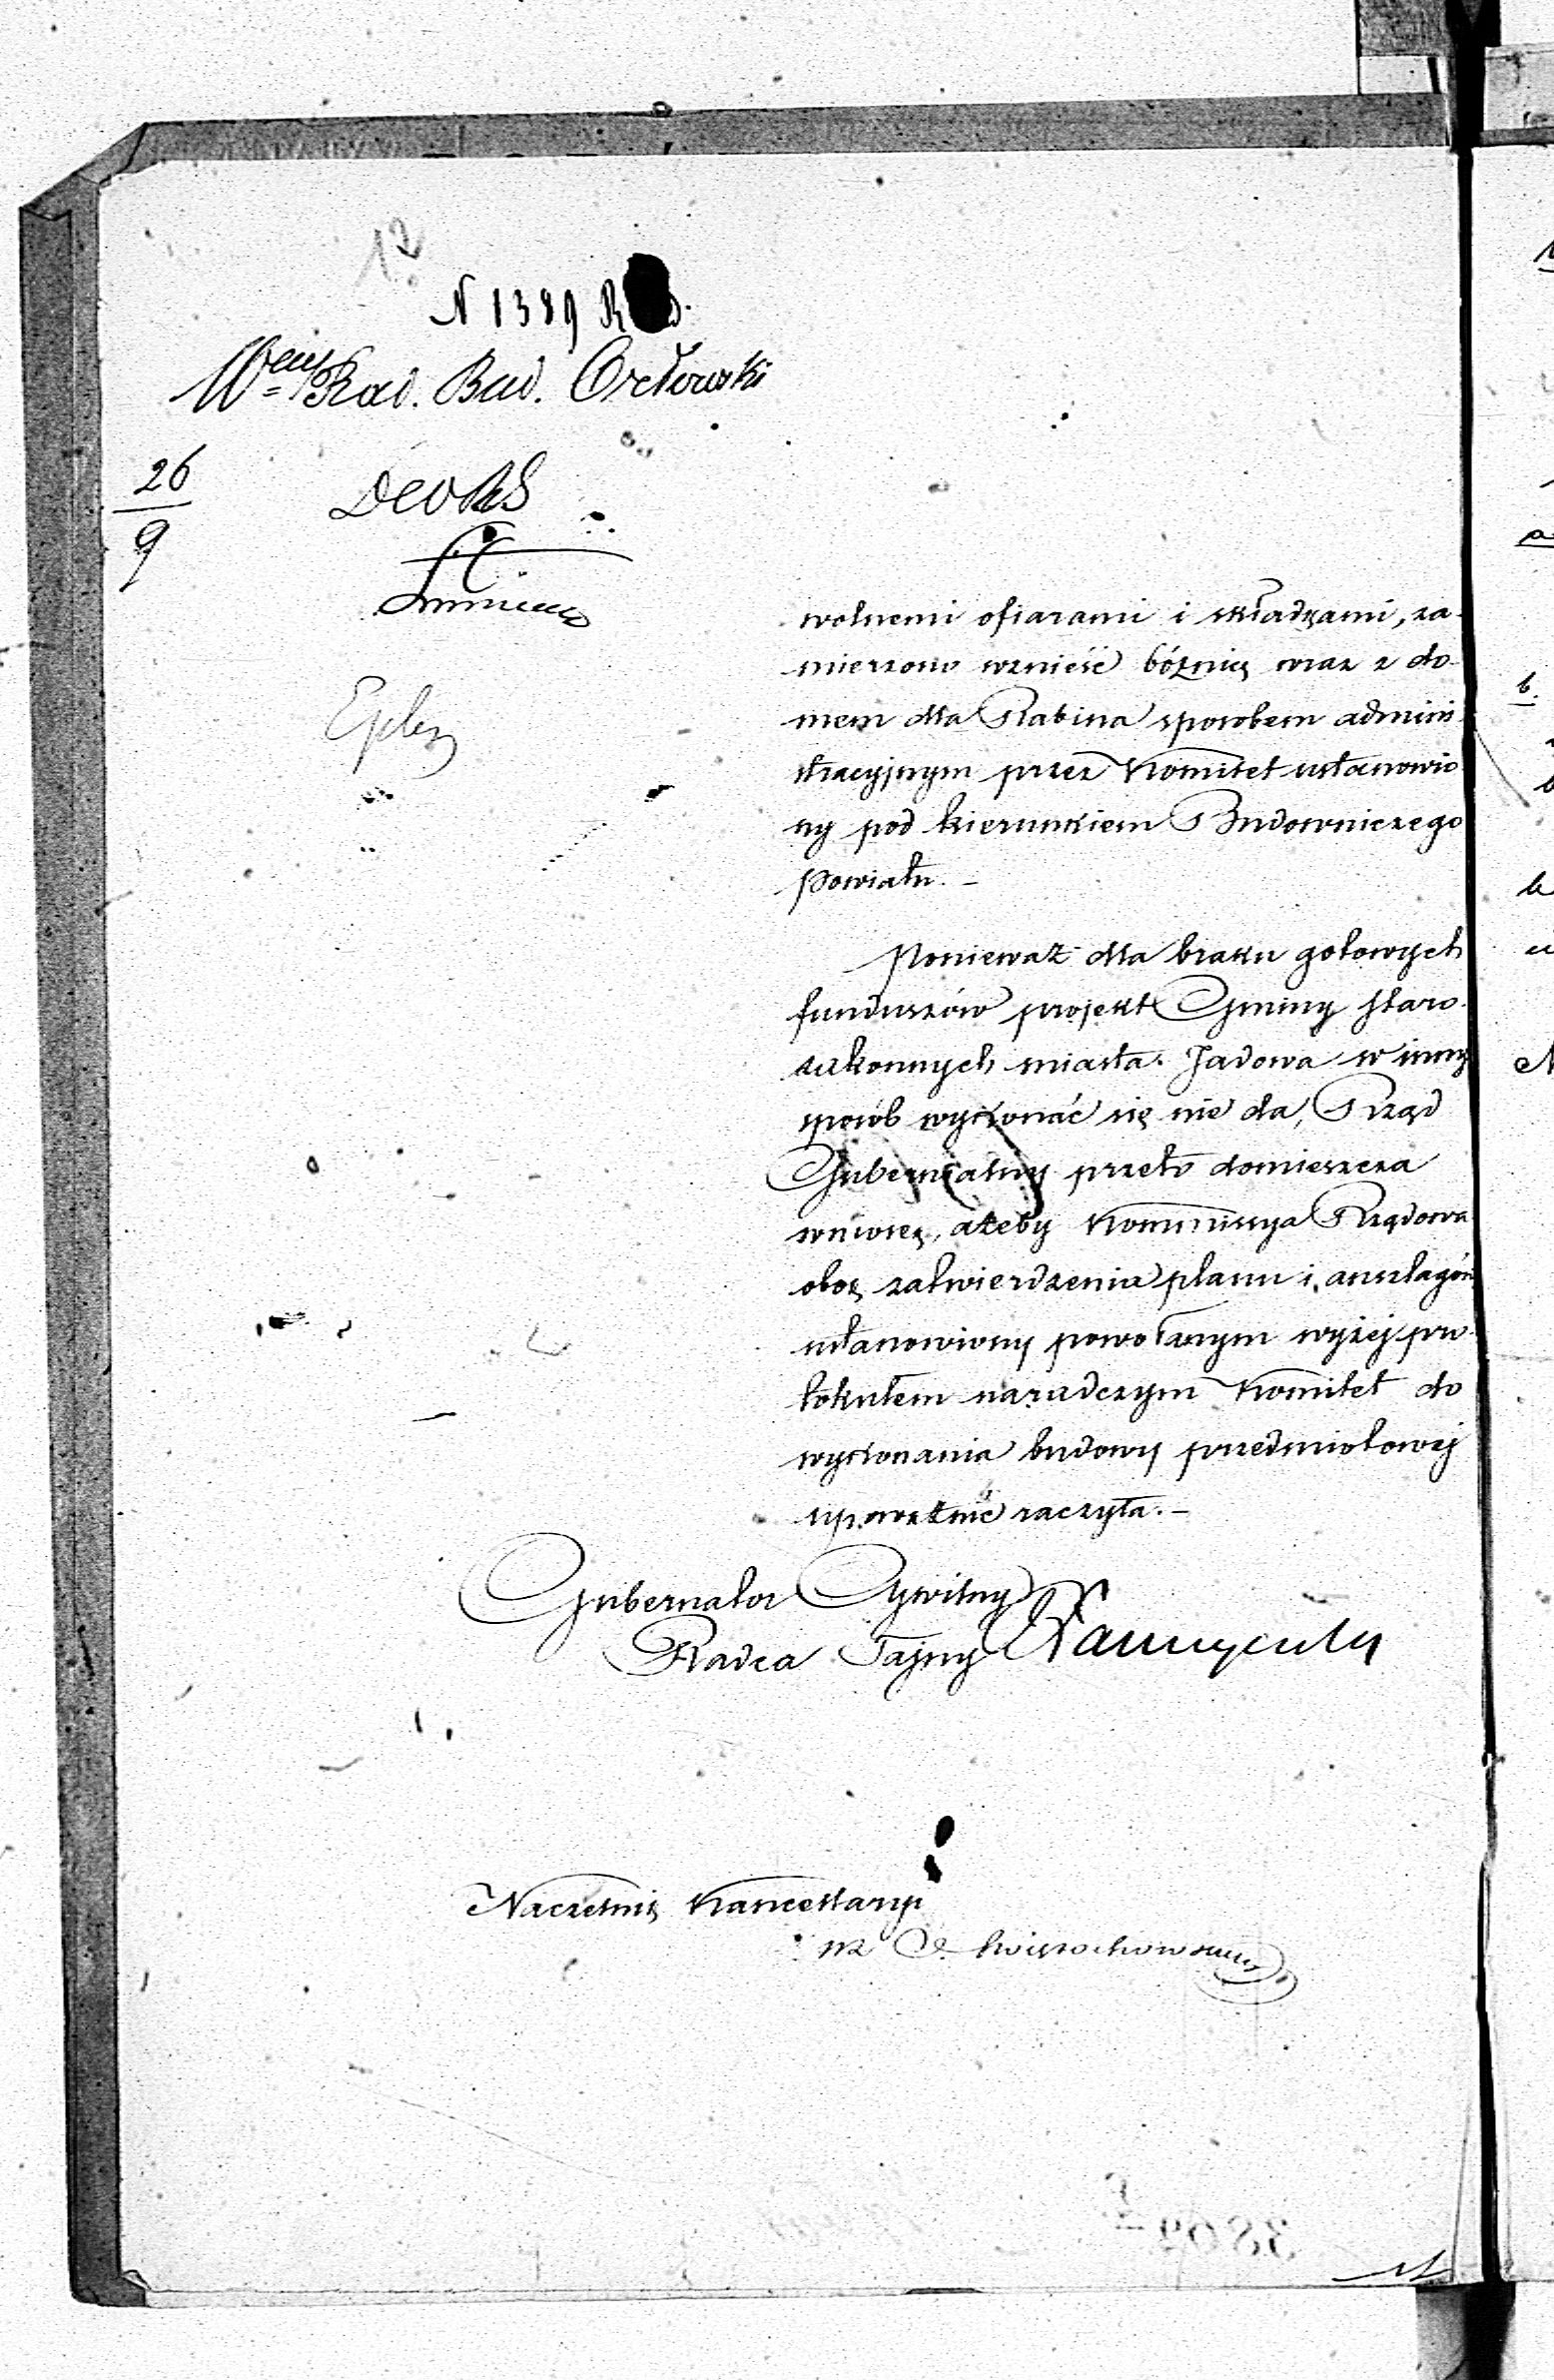 12
N 1389
Rad. Bud. Orłowski
26
9
wolnemi ofiarami i składkami, za-
mierzono wznieść bóżnię wraz z do-
mem dla Rabina sposobem admini-
stracyjnym przez Komitet ustanowio-
ny pod kierunkiem Budowniczego
Powiatu.-
Ponieważ dla braku gotowych
funduszów projekt Gminy Staro-
zakonnych miasta Jadowa w inny
sposób wykonać się nie da, Rząd
Gubernialny przeto domieszcza
wniosek, ażeby Kommissya Rządowa
obok zatwierdzenia planu i anszlagów
ustanowiony powołanym wyżej pro-
tokułem naradczym Komitet do
wykonania budowy przedmiotowej
upoważnić raczyła.-
Gubernator Cywilny
Radca Tajny
Naczelnik Kancellaryi
3809